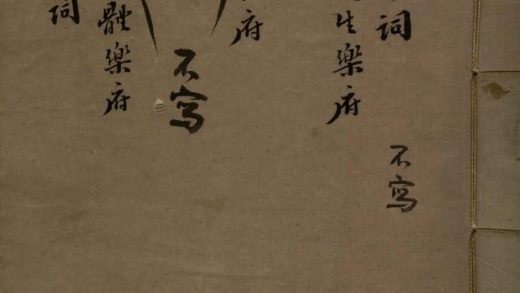 詞
不寫
生樂府
府
不寫
體樂府
詞